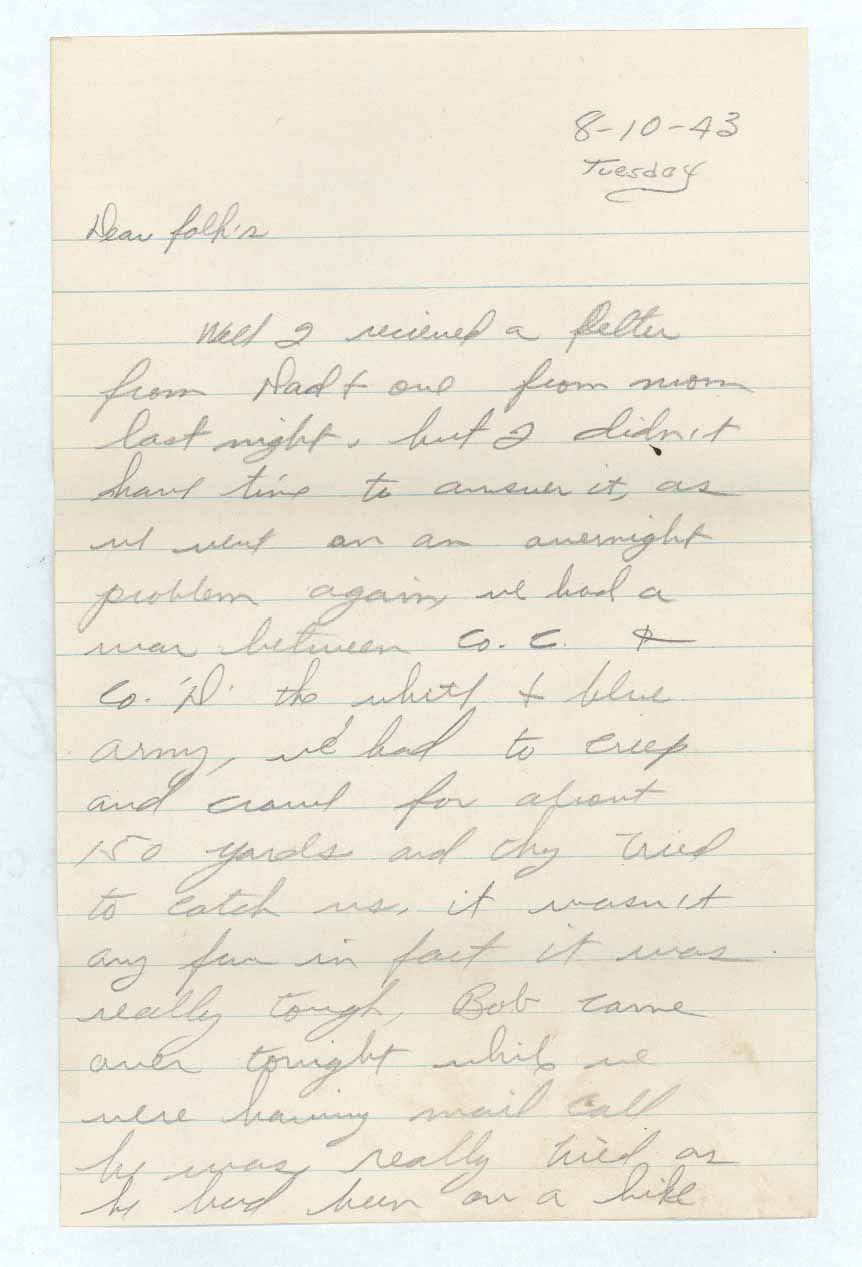 8-10-43
Tuesday
Dear folk's
Well I recieved a letter
from Dad & one from mom
last night, but I didn't
have time to answer it, as
we went on an overnight
problem again, we had a
war between Co. C. &
Co. 'D' the white & blue
army, we had to creep
and crawl for about
150 yards and they tried
to catch us, it wasn't
any fun in fact it was
really tough, Bob came
over tonight while we
were having mail call
he was really tired as
he had been on a hike